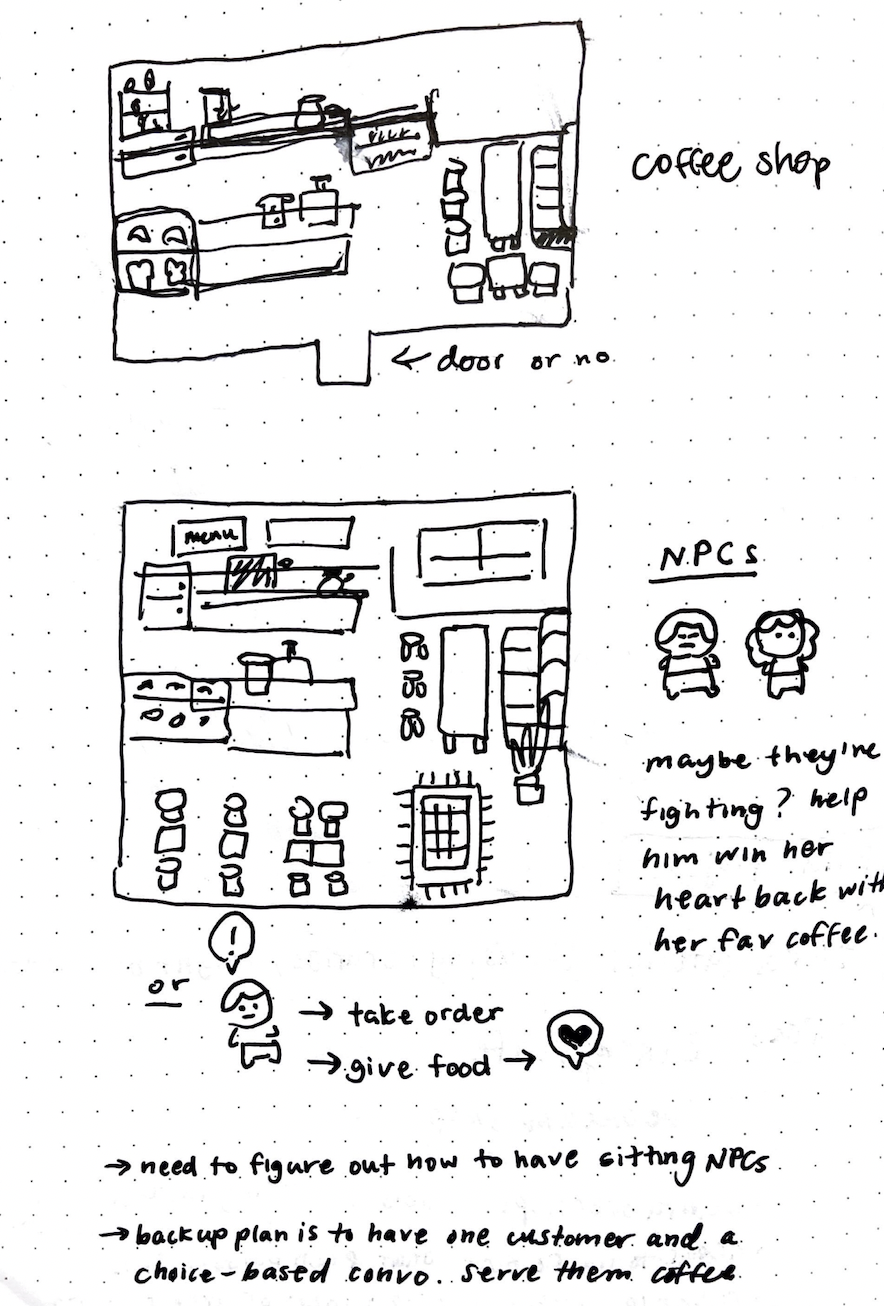 coffee shop
← door or no
menu
NPCs
maybe they're
fighting? help
him win her
heart back with
her fav coffee.
!
or
→ take order
→ give food →
→ need to figure out how to have sitting NPCs
→ backup plan is to have one customer and a
choice-based convo. serve them coffee